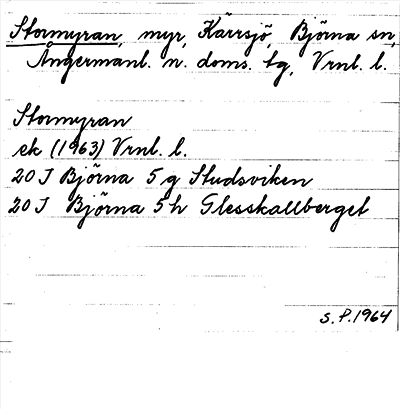 Stormyran, myr, Kärrsjö, Björna sn,
Ångermanl. n. doms. tg, Vrnl. l.
Stormyran
ek (1963) Vrnl. l.
20 J Björna 5 g Studsviken
20 J Björna 5 h Glesskallberget
S.P. 1964